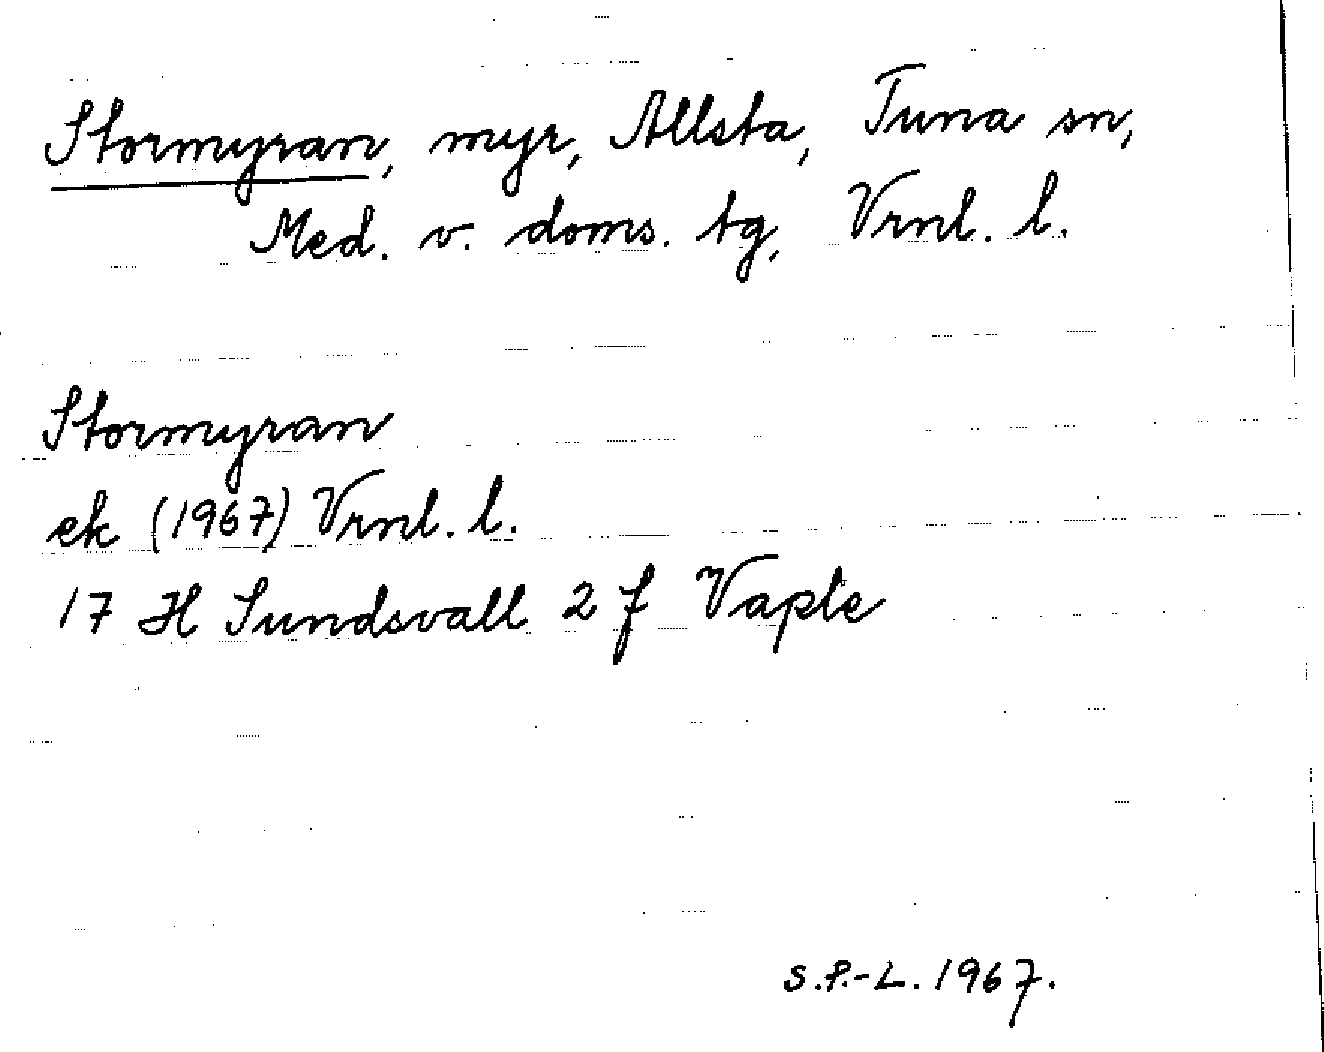 Stormyran, myr, Allsta, Tuna sn,
Med. v. doms. tg, Vrnl. l.
Stormyran
ek (1967) Vrnl. l.
17 H Sundsvall 2 f Vaple
S.P.-L. 1967.